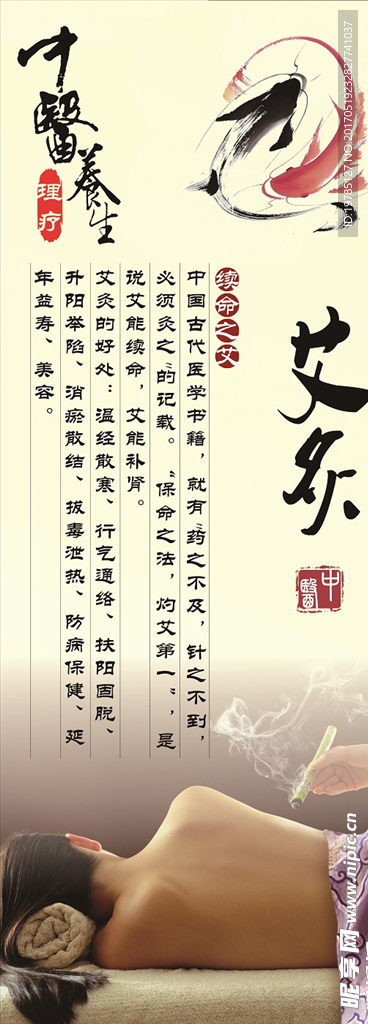 中醫養生
理疗
艾炙
中醫
续命之艾
中国古代医学书籍，就有“药之不及，针之不到，
必须灸之”的记载。“保命之法，灼艾第一”，是
说艾能续命，艾能补肾。
艾灸的好处：温经散寒、行气通络、扶阳固脱、
升阳举陷、消瘀散结、拔毒泄热、防病保健、延
年益寿、美容。
ID:19735127 NO:20170519232827741037
昵享网 www.nipic.cn